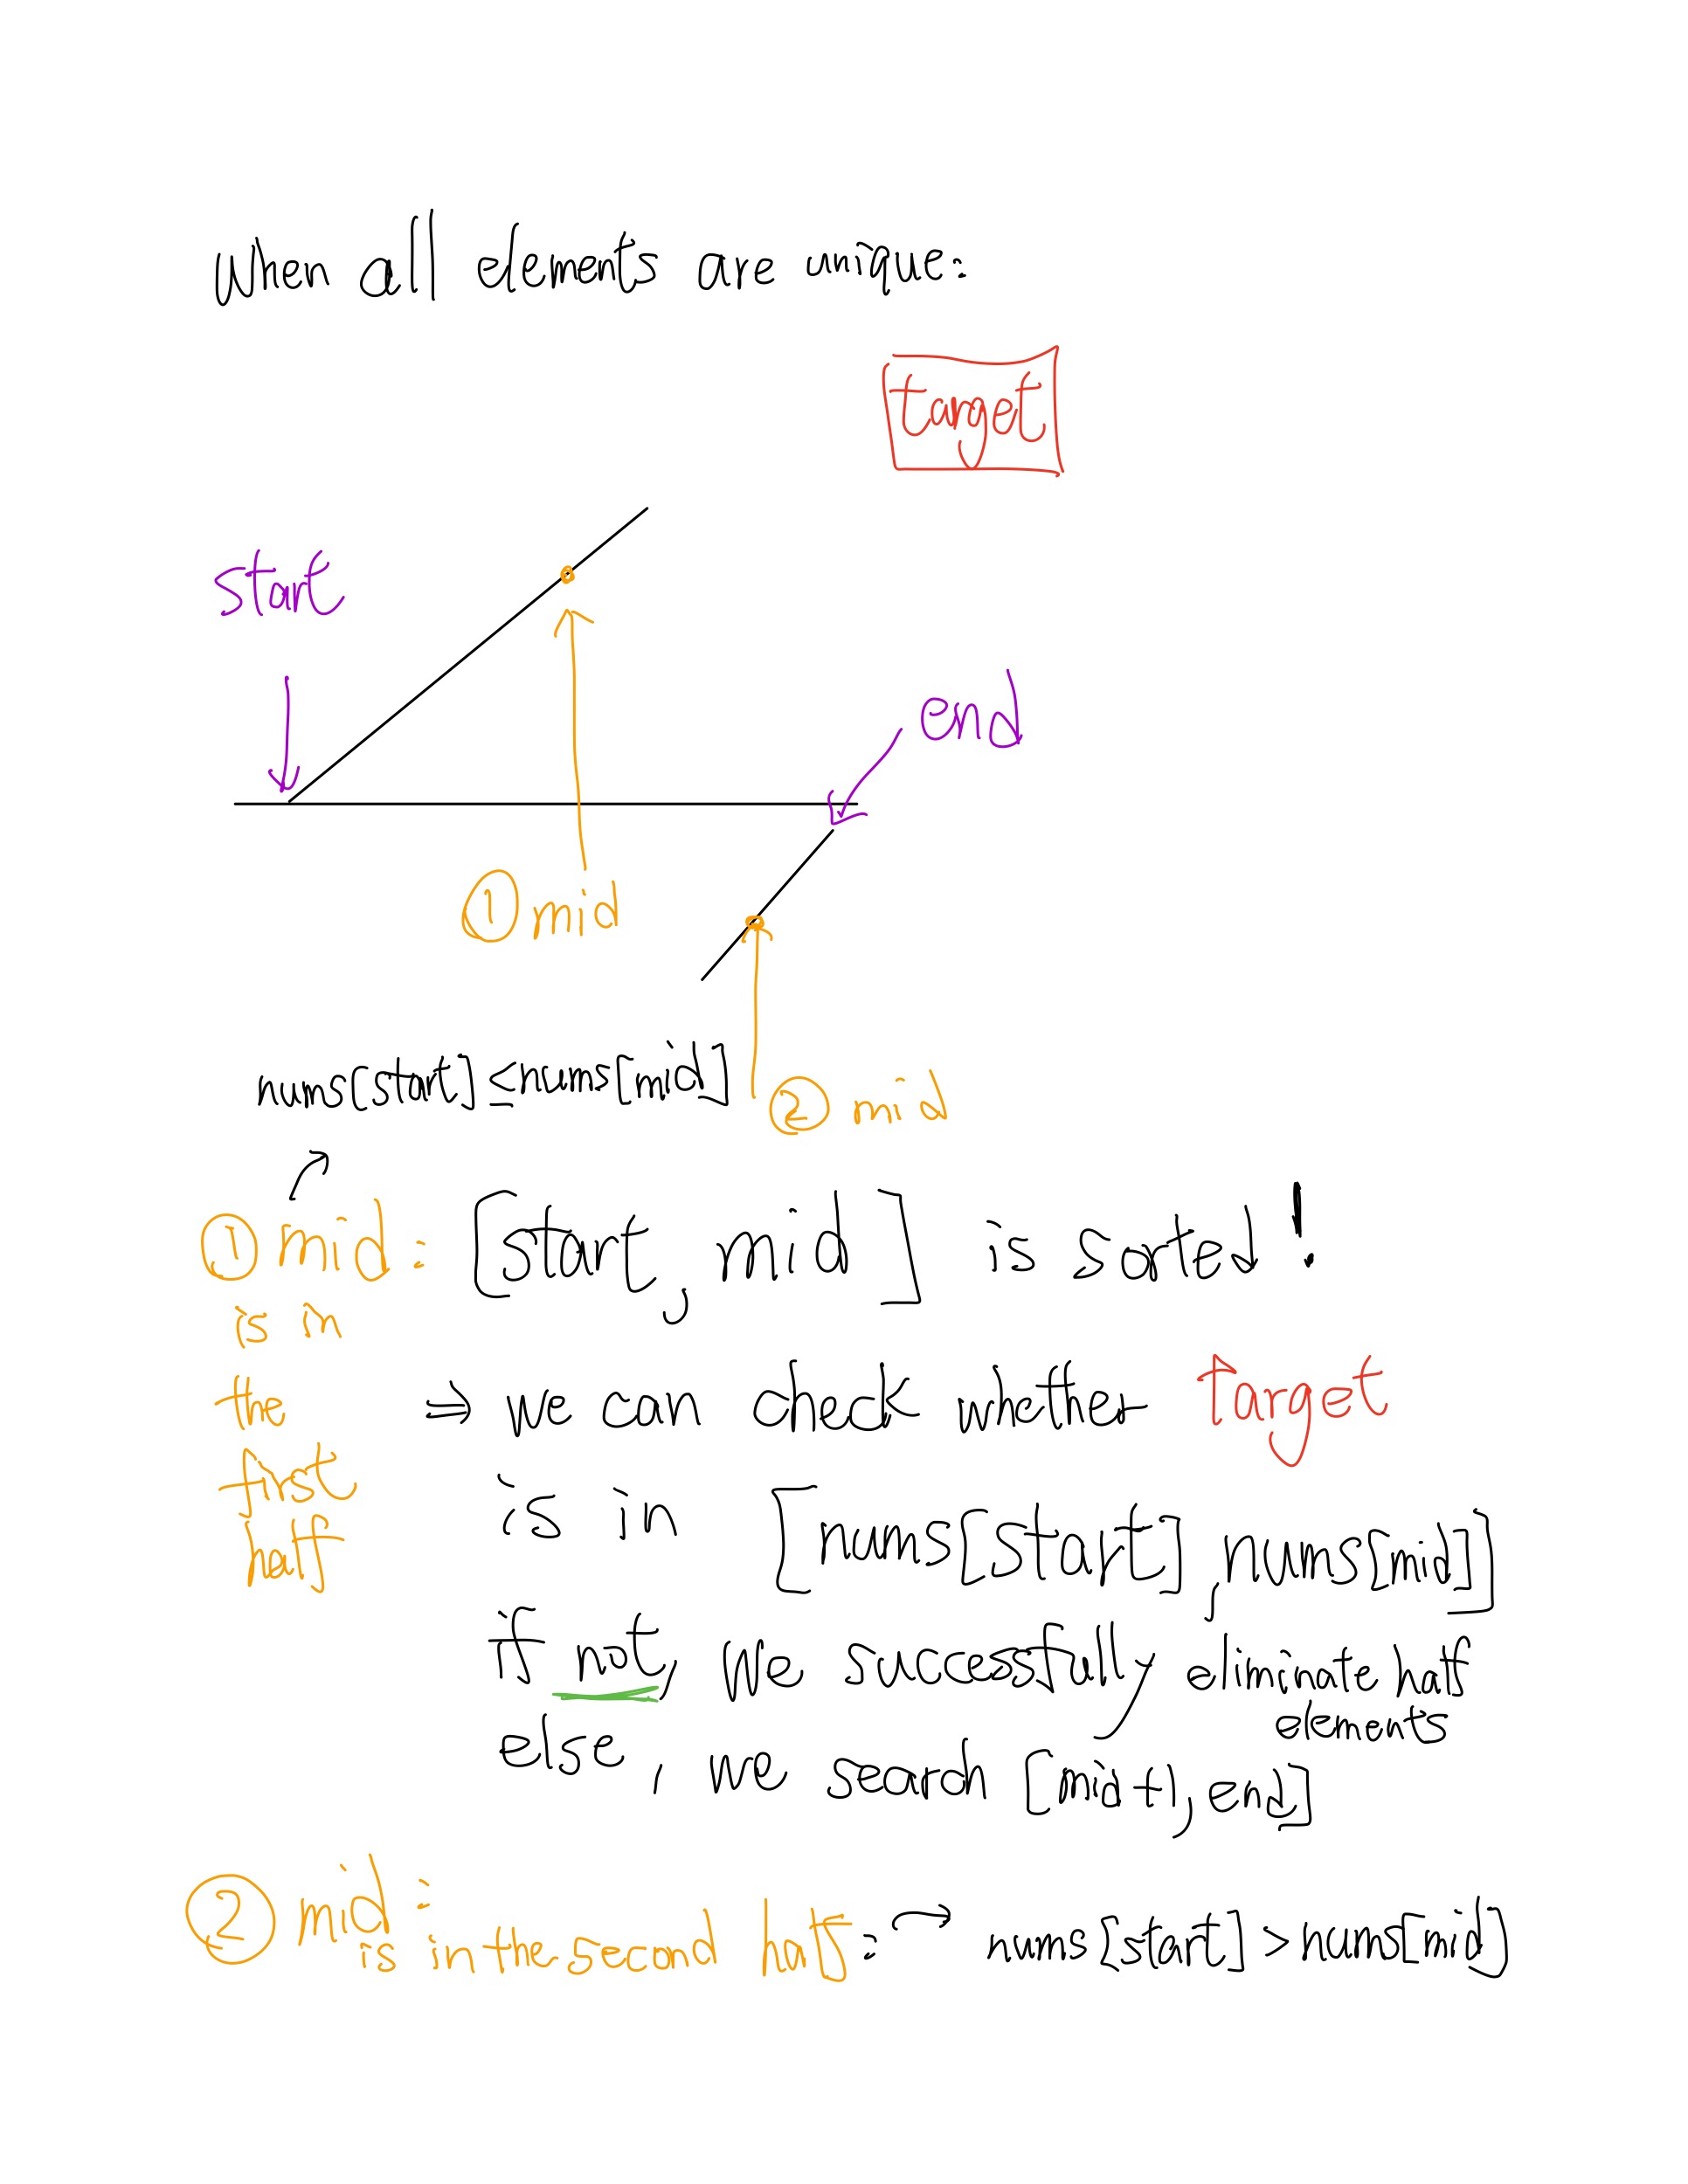 When all elements are unique:
target
start
end
① mid
nums[start] ≤ nums[mid]
② mid
① mid: [start, mid] is sorted!
is in
the
first
half
⇒ we can check whether Target
is in [nums[start], nums[mid]]
if not, we successfully eliminate half
elements
else, we search [mid+1, end]
② mid:
is in the second half: → nums[start] > nums[mid]